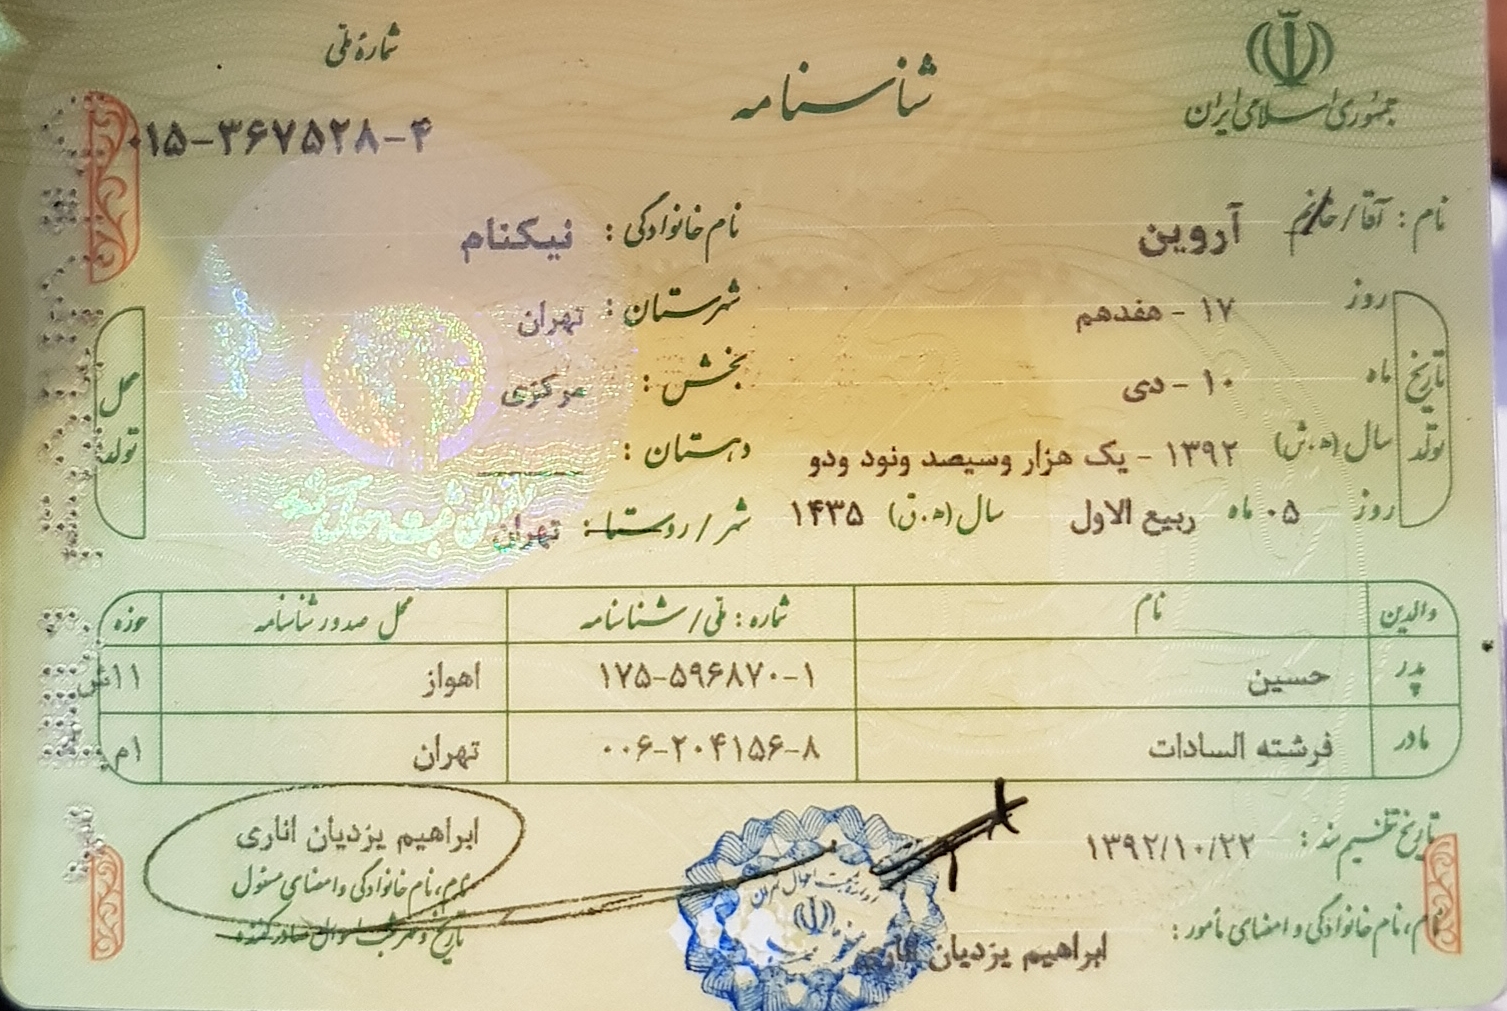 جمهوری اسلامی ایران
شناسنامه
شماره ملی
۰۱۵-۳۶۷۵۲۸-۴
نام : آقا/خانم آروین نام خانوادگی : نیکنام
تاریخ تولد
روز ۱۷ - هفدهم
ماه ۱۰ - دی
سال (ه.ش) ۱۳۹۲ - یک هزار وسیصد ونود ودو
روز ۰۵ ماه ربیع الاول سال (ه.ق) ۱۴۳۵
محل تولد
شهرستان : تهران
بخش : مرکزی
دهستان :
شهر / روستا : تهران
والدین نام شماره : ملی / شناسنامه محل صدور شناسنامه حوزه
پدر حسین ۱۷۵-۵۹۶۸۷۰-۱ اهواز ۱۱ش
مادر فرشته السادات ۰۰۶-۲۰۴۱۵۶-۸ تهران ۱م
تاریخ تنظیم سند : ۱۳۹۲/۱۰/۲۲
نام، نام خانوادگی و امضای مأمور : ابراهیم یزدیان اناری
ابراهیم یزدیان اناری
نام، نام خانوادگی و امضای مسئول
تاریخ و مهر ثبت احوال صادر کننده